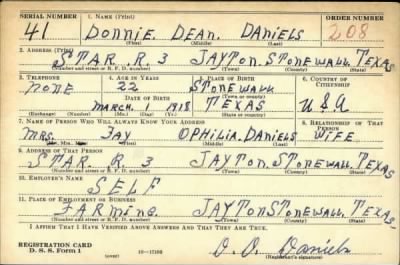 SERIAL NUMBER 1. NAME (Print) ORDER NUMBER
41 DONNIE. DEAN. DANIELS 208
(First) (Middle) (Last)
2. ADDRESS (Print)
STAR. R. 3 JAYTON. STONEWALL. TEXAS
(Number and street or R. F. D. number) (Town) (County) (State)
3. TELEPHONE 4. AGE IN YEARS 5. PLACE OF BIRTH 6. COUNTRY OF CITIZENSHIP
NONE 22 STONEWALL
DATE OF BIRTH (Town or county)
MARCH 1 1918 TEXAS U.S.A
(Exchange) (Number) (Mo.) (Day) (Yr.) (State or country)
7. NAME OF PERSON WHO WILL ALWAYS KNOW YOUR ADDRESS 8. RELATIONSHIP OF THAT PERSON
MRS. JAY OPHILIA. DANIELS WIFE
(Mr., Mrs., Miss) (First) (Middle) (Last)
9. ADDRESS OF THAT PERSON
STAR. R 3 JAYTON. STONEWALL. TEXAS
(Number and street or R. F. D. number) (Town) (County) (State)
10. EMPLOYER'S NAME
SELF
11. PLACE OF EMPLOYMENT OR BUSINESS
FARMING. JAYTON STONEWALL TEXAS.
(Number and street or R. F. D. number) (Town) (County) (State)
I AFFIRM THAT I HAVE VERIFIED ABOVE ANSWERS AND THAT THEY ARE TRUE.
REGISTRATION CARD
D. S. S. Form 1 (over) D. D. Daniels
(Registrant's signature)